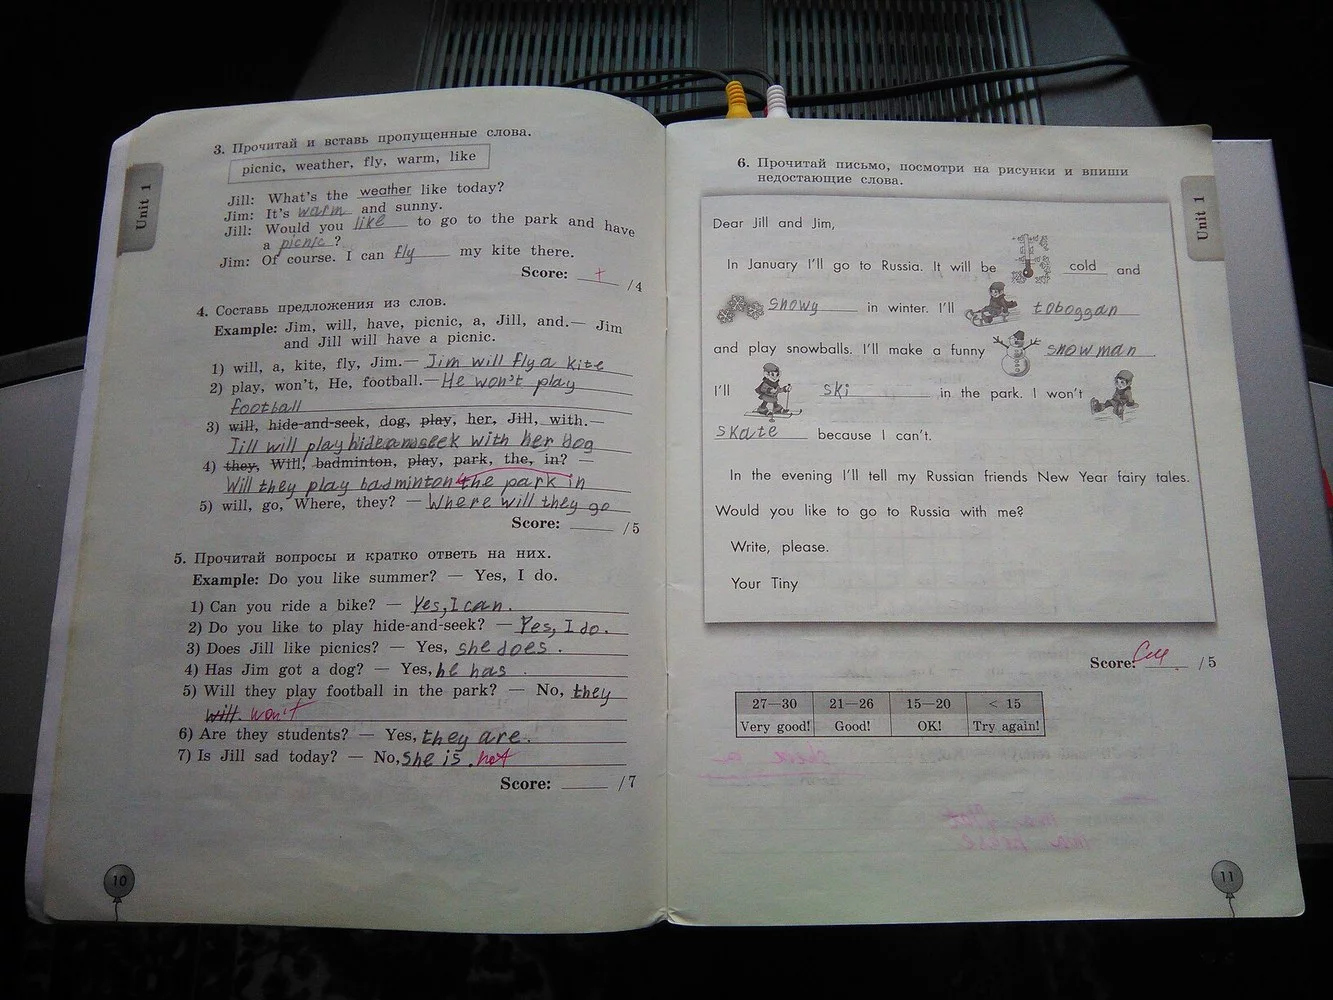 Unit 1
3. Прочитай и вставь пропущенные слова.
picnic, weather, fly, warm, like
Jill: What's the weather like today?
Jim: It's warm and sunny.
Jill: Would you like to go to the park and have
a picnic ?
Jim: Of course. I can fly my kite there.
Score: + /4
4. Составь предложения из слов.
Example: Jim, will, have, picnic, a, Jill, and.— Jim
and Jill will have a picnic.
1) will, a, kite, fly, Jim.— Jim will fly a kite
2) play, won't, He, football.— He won't play
football
3) will, hide-and-seek, dog, play, her, Jill, with.—
Jill will play hide and seek with her dog
4) they, Will, badminton, play, park, the, in? —
Will they play badminton the park in
5) will, go, Where, they? — Where will they go
Score: /5
5. Прочитай вопросы и кратко ответь на них.
Example: Do you like summer? — Yes, I do.
1) Can you ride a bike? — Yes, I can.
2) Do you like to play hide-and-seek? — Yes, I do.
3) Does Jill like picnics? — Yes, she does.
4) Has Jim got a dog? — Yes, he has.
5) Will they play football in the park? — No, they
will. won't
6) Are they students? — Yes, they are.
7) Is Jill sad today? — No, she is. not
Score: /7
10
6. Прочитай письмо, посмотри на рисунки и впиши
недостающие слова.
Unit 1
Dear Jill and Jim,
In January I'll go to Russia. It will be cold and
snowy in winter. I'll toboggan
and play snowballs. I'll make a funny snowman.
I'll ski in the park. I won't
skate because I can't.
In the evening I'll tell my Russian friends New Year fairy tales.
Would you like to go to Russia with me?
Write, please.
Your Tiny
Score: /5
27—30 21—26 15—20 < 15
Very good! Good! OK! Try again!
11